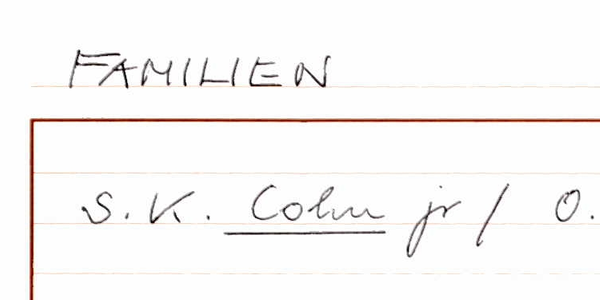 FAMILIEN
S. K. Cohn jr / O.